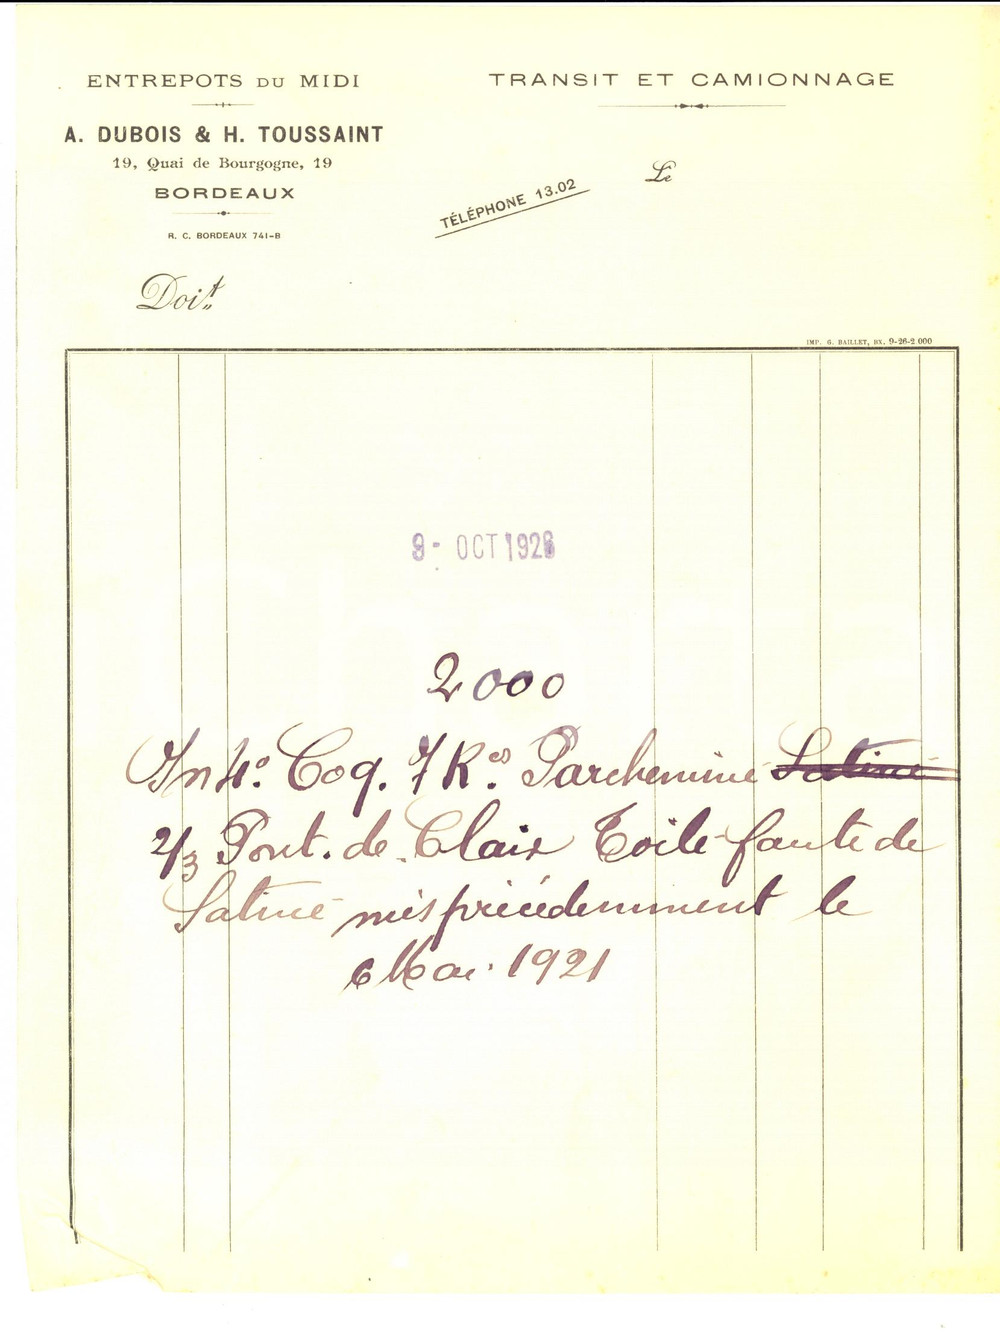 ENTREPOTS DU MIDI
A. DUBOIS & H. TOUSSAINT
19, Quai de Bourgogne, 19
BORDEAUX
R. C. BORDEAUX 741-B
TRANSIT ET CAMIONNAGE
TÉLÉPHONE 13.02
Le
Doit
IMP. G. BAILLET, BX. 9-26-2 000
9 - OCT 1926
2000
In 4° Coq. 7 K.os Parcheminé Satiné
2/3 Pont. de Claix Toile faute de
Satiné mis précédemment le
6 Mai 1921